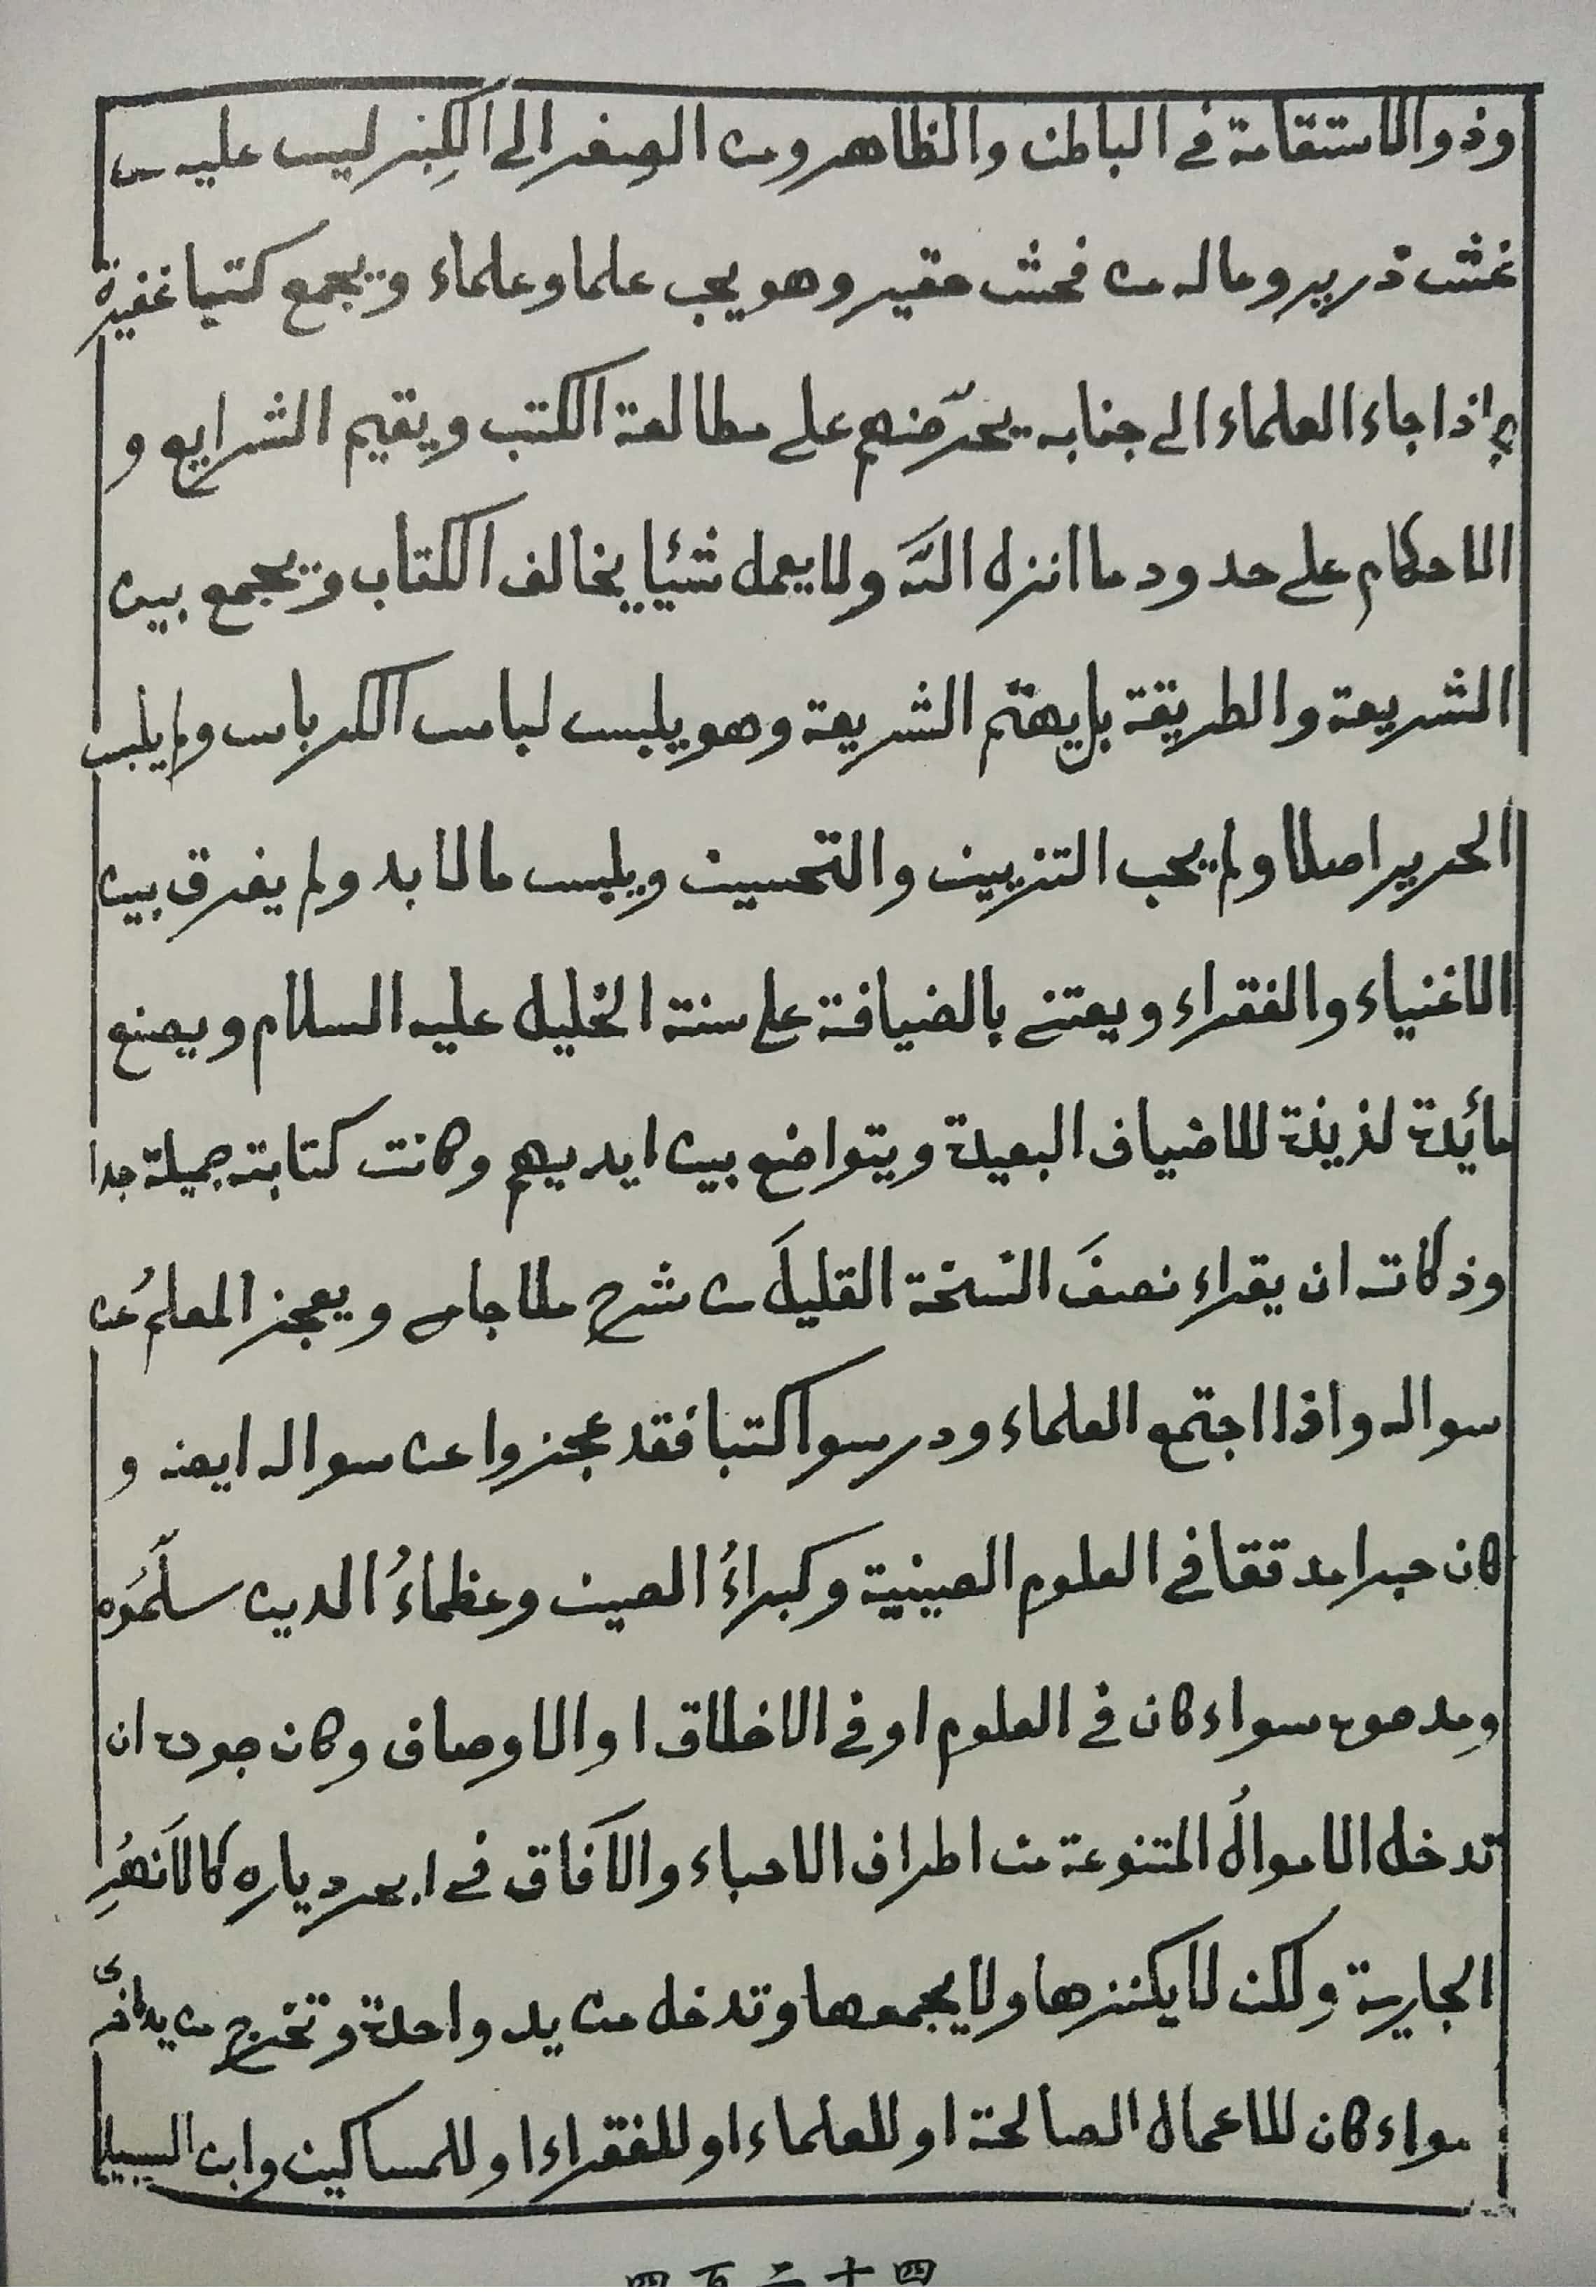 وذو الاستقامة في الباطن والظاهر ومن الصِغر الى الكِبَر ليس عليه من
غش ذرير وماله من فحش حقير وهو يحب علما وعلماء ويجمع كتبا غفيرة
اذا جاء العلماء الى جنابه يحرّضهم على مطالعة الكتب ويقيم الشرايع و
الاحكام على حدود ما انزل الله ولا يعمل شئيا يخالف الكتاب ويجمع بين
الشريعة والطريقة بل يهتم الشريعة وهو يلبس لباس الكرباس ولم يلبس
الحرير اصلا ولم يحب التزيين والتحسين ويلبس ما لا بد ولم يفرق بين
الاغنياء والفقراء ويعتني بالضيافة على سنة الخليل عليه السلام ويصنع
مأيدة لذيذة للاضياف البعيدة ويتواضع بين ايديهم وكانت كتابته جميلة جدا
وذكاته ان يقراء نصفَ النسخة القليلَ من شرح ملا جامي ويعجز المعلمُ عن
سواله واذا اجتمع العلماء ودرسوا كتبا فقد عجزوا عن سواله ايضا و
كان حبرا مدققا في العلوم الصينية وكبراءُ الصين وعظماءُ الدين سلّمُوه
ومدحوه سواء كان في العلوم او في الاخلاق او الاوصاف وكان جوده ان
تدخل الاموالُ المتنوعة من اطراف الاحباء والآفاق في ابحر دياره كالاَنهُرِ
الجارية ولكن لا يكنزها ولا يجمعها وتدخل من يد واحدة وتخرج من يد اخرى
سواء كان للاعمال الصالحة او للعلماء او للفقراء او للمساكين وابن السبيل
四百二十四